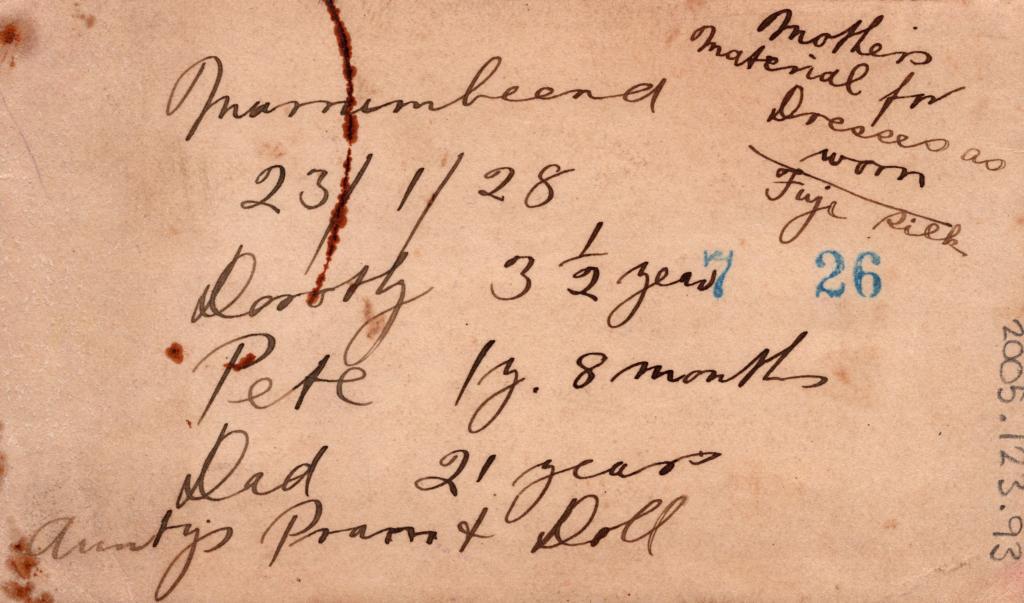 Mothers
Material for
Dresses as
worn
Fuji silk
Narrumbeend
23/1/28
Dorothy 3 1/2 years
7 26
Pete 1y. 8 months
Dad 21 years
Auntys Pram & Doll
2005.123.93